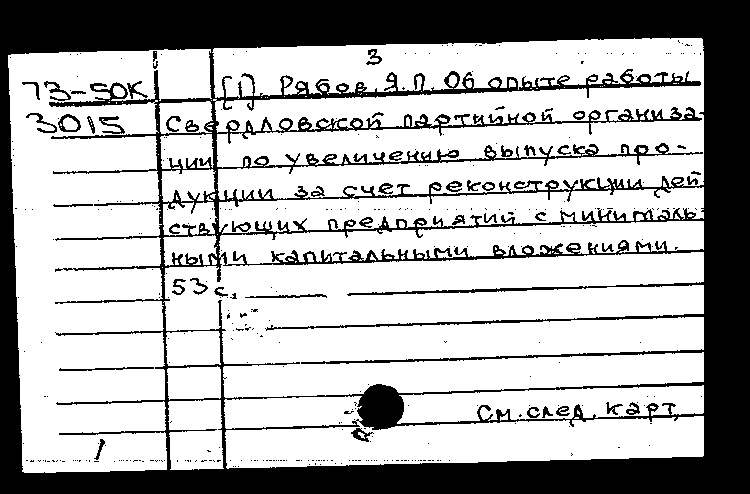 3
73-50К [1]. Рябов, Я.П. Об опыте работы
3015 Свердловской партийной организа-
ции по увеличению выпуска про-
дукции за счет реконструкции дей
ствующих предприятий с минималь-
ными капитальными вложениями.
53 с.
См. след. карт.
1